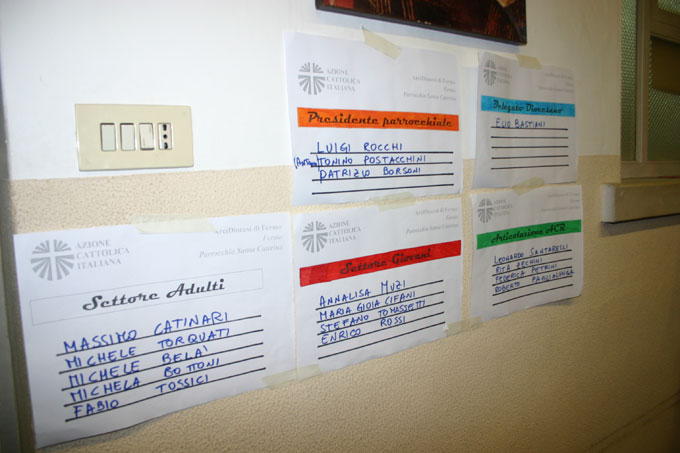 AZIONE
CATTOLICA
ITALIANA
ArciDiocesi di Fermo
Fermo
Parrocchia Santa Caterina
Presidente parrocchiale
LUIGI ROCCHI
TONINO POSTACCHINI
PATRIZIO BORSONI
AZIONE
CATTOLICA
ITALIANA
ArciDiocesi di Fermo
Fermo
Parrocchia Santa Caterina
Delegato Diocesano
ELIO BASTIANI
AZIONE
CATTOLICA
ITALIANA
ArciDiocesi di Fermo
Fermo
Parrocchia Santa Caterina
Settore Adulti
MASSIMO CATINARI
MICHELE TORQUATI
MICHELE BELA'
MICHELA BOTTONI
FABIO TOSSICI
AZIONE
CATTOLICA
ITALIANA
ArciDiocesi di Fermo
Fermo
Parrocchia Santa Caterina
Settore Giovani
ANNALISA MUZI
MARIA GIOIA CIFANI
STEFANO TOMASSETTI
ENRICO ROSSI
AZIONE
CATTOLICA
ITALIANA
ArciDiocesi di Fermo
Fermo
Parrocchia Santa Caterina
Articolazione ACR
LEONARDO SANTARELLI
RITA
FEDERICA PETRINI
ROBERTO PAGLIALUNGA